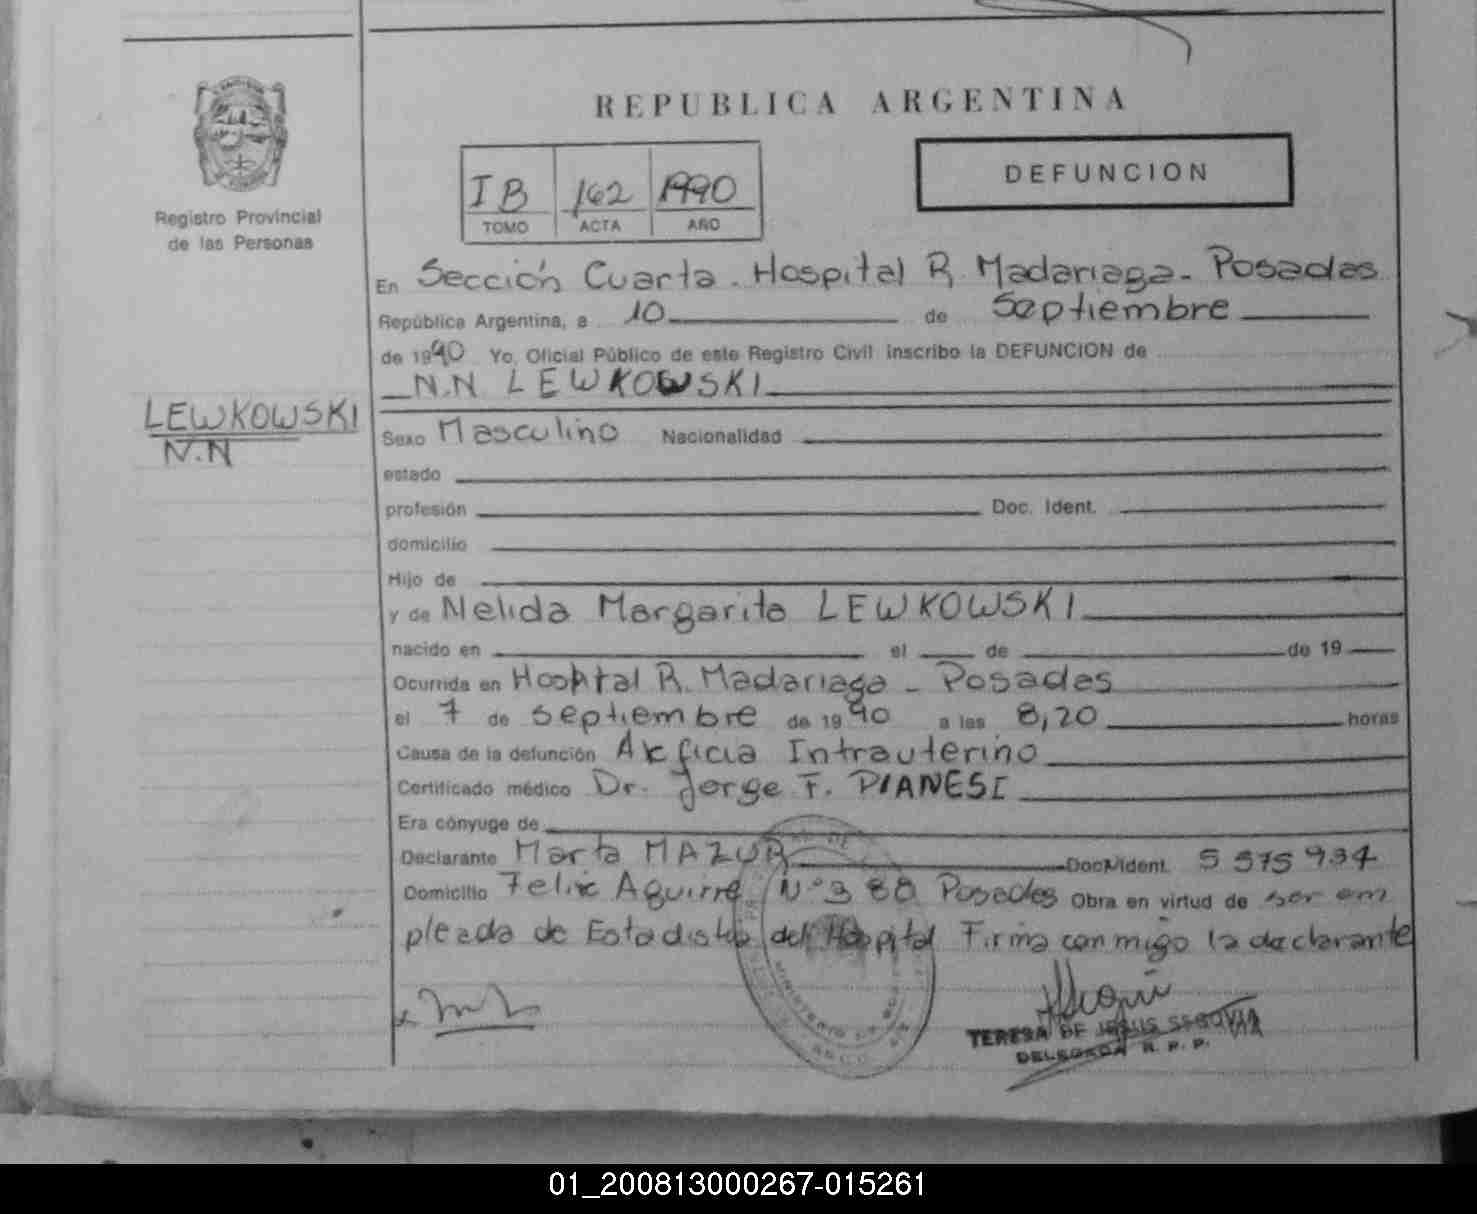 REPUBLICA ARGENTINA
DEFUNCION
I B 162 1990
TOMO ACTA AÑO
Registro Provincial
de las Personas
En Sección Cuarta. Hospital R. Madariaga - Posadas
República Argentina, a 10 de Septiembre
de 1990 Yo, Oficial Público de este Registro Civil inscribo la DEFUNCION de
N.N LEWKOWSKI
LEWKOWSKI
N.N
Sexo Masculino Nacionalidad
estado
profesión Doc. Ident.
domicilio
Hijo de
y de Nelida Margarita LEWKOWSKI
nacido en el de de 19
Ocurrida en Hospital R. Madariaga - Posadas
el 7 de septiembre de 1990 a las 8,20 horas
Causa de la defunción Intrauterino
Certificado médico Dr. Jorge F. PIANESI
Era cónyuge de
Declarante Marta MAZUR Doc. Ident. 5 575 934
Domicilio Felix Aguirre N° 388 Posadas Obra en virtud de ser em
pleada de Estadistica del Hospital Firma conmigo la declarante
TERESA DE JESUS SEGOVIA
DELEGADA R. P. P.
01_200813000267-015261